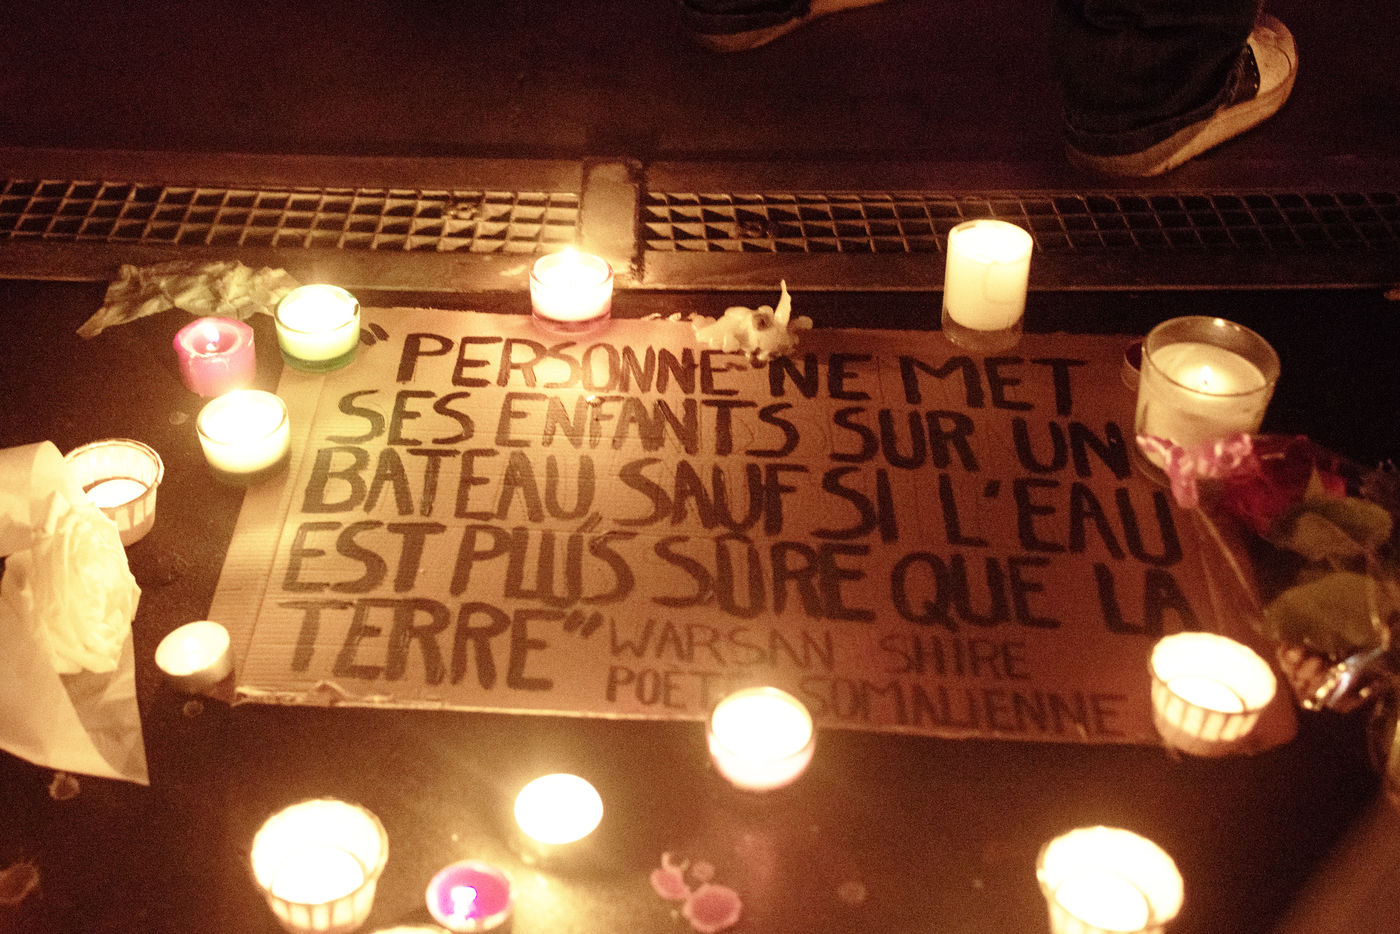 " PERSONNE NE MET
SES ENFANTS SUR UN
BATEAU, SAUF SI L'EAU
EST PLUS SÛRE QUE LA
TERRE"
WARSAN SHIRE
SOMALIENNE